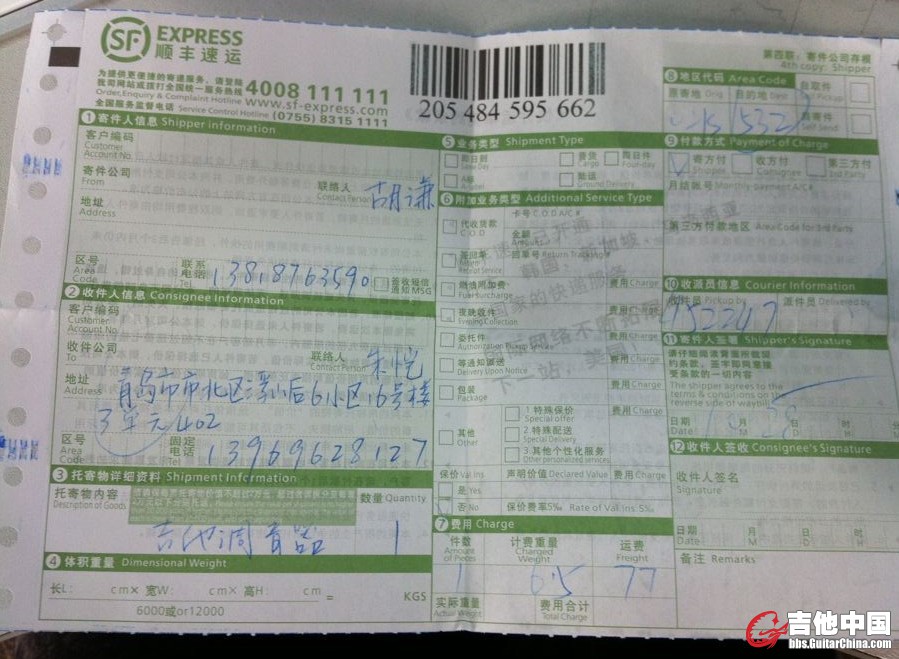 SF EXPRESS
顺丰速运
为了提供更便捷的寄递服务，请登陆
我司网站或拨打全国统一服务热线 4008 111 111
Order,Enquiry & Complaint Hotline www.sf-express.com
全国服务监督电话 Service Control Hotline (0755) 8315 1111
205 484 595 662
第四联：寄件公司存根
4th copy: Shipper
1 寄件人信息 Shipper information
客户编码
Customer
Account No.
寄件公司
From
联络人
Contact Person
胡谦
地址
Address
区号
Area
Code
联系
电话
Tel.
13818763590
签收短信
通知MSG
2 收件人信息 Consignee Information
客户编码
Customer
Account No.
收件公司
To
联络人
Contact Person
朱悦
地址
Address
青岛市市北区
后6小区16号楼
3单元402
区号
Area
Code
固定
电话
Tel.
13969628127
3 托寄物详细资料 Shipment Information
托寄物内容
Description of Goods
数量 Quantity
吉他调音器 1
4 体积重量 Dimensional Weight
长L: cm× 宽W: cm× 高H: cm = KGS
6000或or12000
5 业务类型 Shipment Type
即日到
Same Day
普货
Cargo
四日件
Four-day
陆运
Ground Delivery
6 附加业务类型 Additional Service Type
代收货款
C.O.D
卡号 C.O.D A/C#
金额
签回单
Receipt Service
回单号 Return Tracking#
燃油附加费
Fuel Surcharge
费用 Charge
夜晚收件
Evening Collection
费用 Charge
委托件
费用 Charge
等通知派送
Delivery Upon Notice
费用 Charge
包装
Package
费用 Charge
其他
Other
1 特殊保价
Special offer
费用 Charge
2 特殊配送
Special Delivery
3 其他个性化服务
Other personalized services
保价 Val.Ins
声明价值 Declared Value
费用 Charge
是 Yes
否 No
保价费率5‰ Rate of Val.Ins 5‰
7 费用 Charge
件数
Amount
of Pieces
计费重量
Charged
Weight
运费
Freight
1
77
实际重量
Actual Weight
费用合计
Total Charge
8 地区代码 Area Code
原寄地 Orig.
目的地 Dest.
自取件
Self Pickup
自寄件
Self Send
532
9 付款方式 Payment of Charge
寄方付
Shipper
收方付
Consignee
第三方付
3rd Party
月结账号 Monthly payment A/C#
第三方付款地区 Area Code for 3rd Party
10 收派员信息 Courier Information
收件员 Pickup by
派件员 Delivered by
152247
11 寄件人签署 Shipper's Signature
The shipper agrees to the
terms & conditions on the
reverse side of waybill
日期
Date
月
M
日
D
时
H
12 收件人签收 Consignee's Signature
收件人签名
Signature
日期
Date
月
M
日
D
时
H
备注 Remarks
吉他中国
bbs.GuitarChina.com